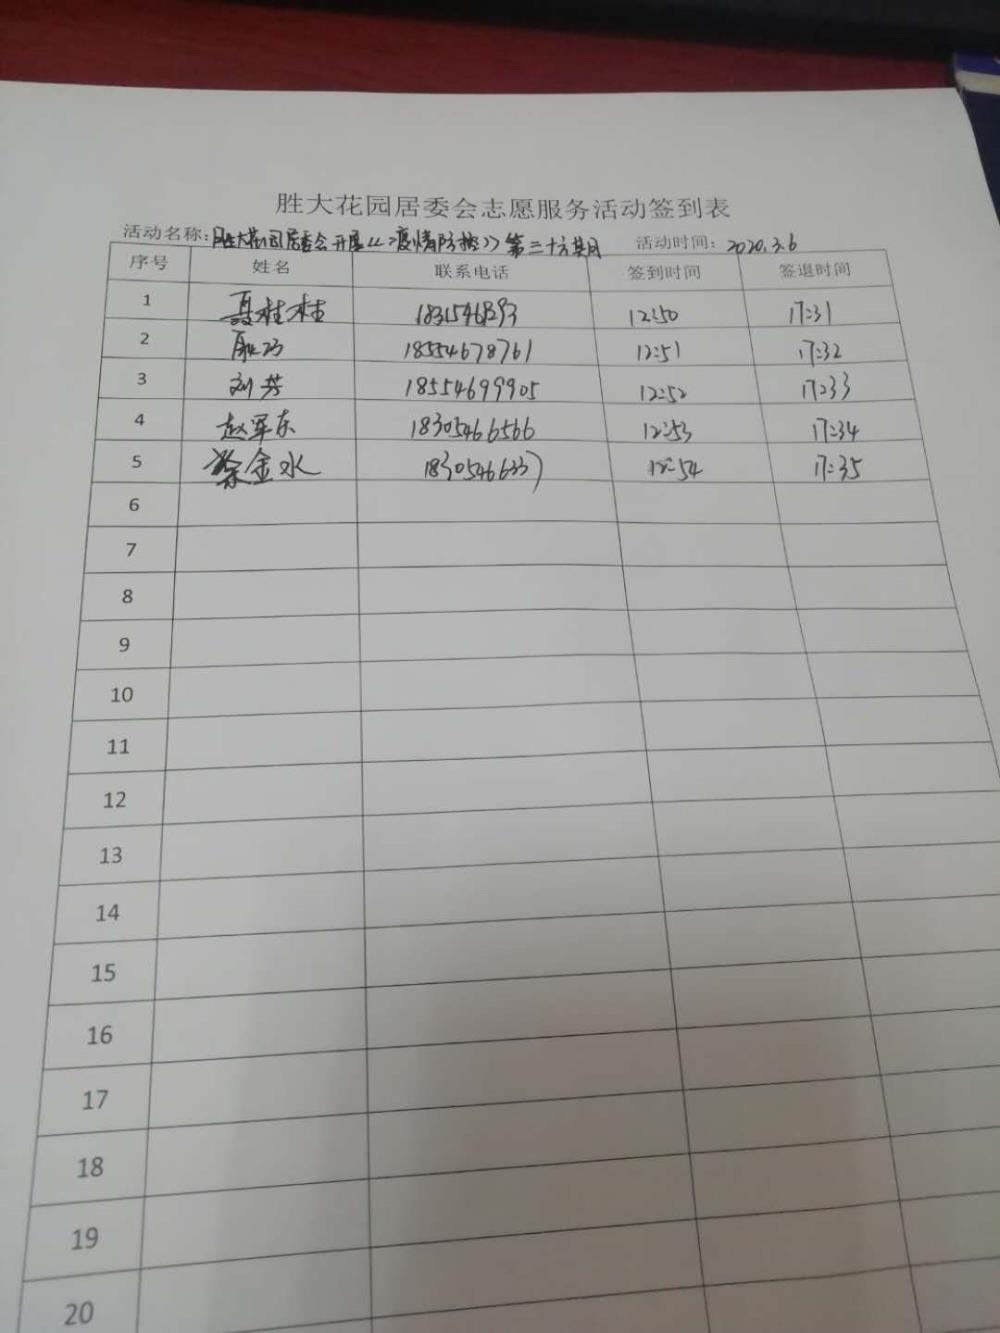 胜大花园居委会志愿服务活动签到表
活动名称：胜大花园居委会开展《疫情防控》第三十六期 活动时间：2020.3.6
序号 姓名 联系电话 签到时间 签退时间
1 聂桂桂 12:50 17:31
2 18554678761 12:51 17:32
3 刘芳 18554699905 12:52 17:33
4 赵军东 18305466566 12:53 17:34
5 金水 12:54 17:35
6
7
8
9
10
11
12
13
14
15
16
17
18
19
20